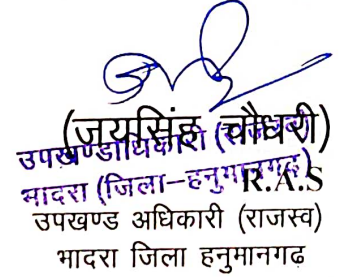 (जयसिंह चौधरी)
उपखण्डाधिकारी (राजस्व)
भादरा (जिला-हनुमानगढ़)
R.A.S
उपखण्ड अधिकारी (राजस्व)
भादरा जिला हनुमानगढ़